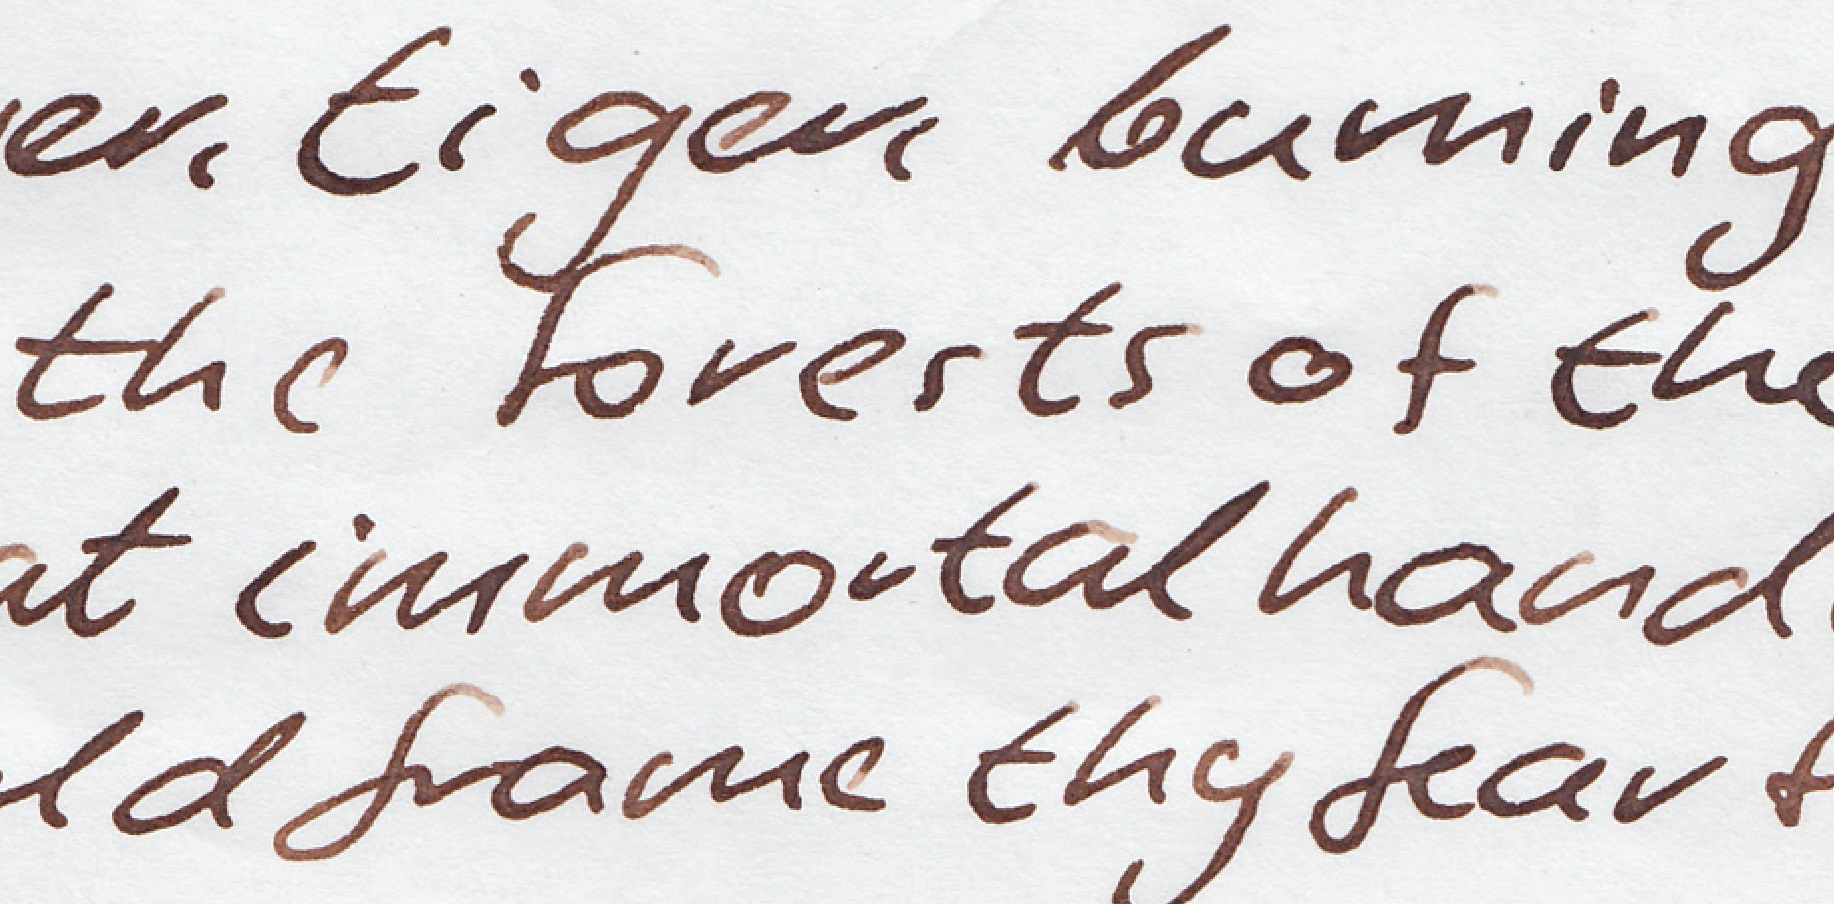 er, tiger, burning
the forests of the
at immortal hand
ld frame thy fear f